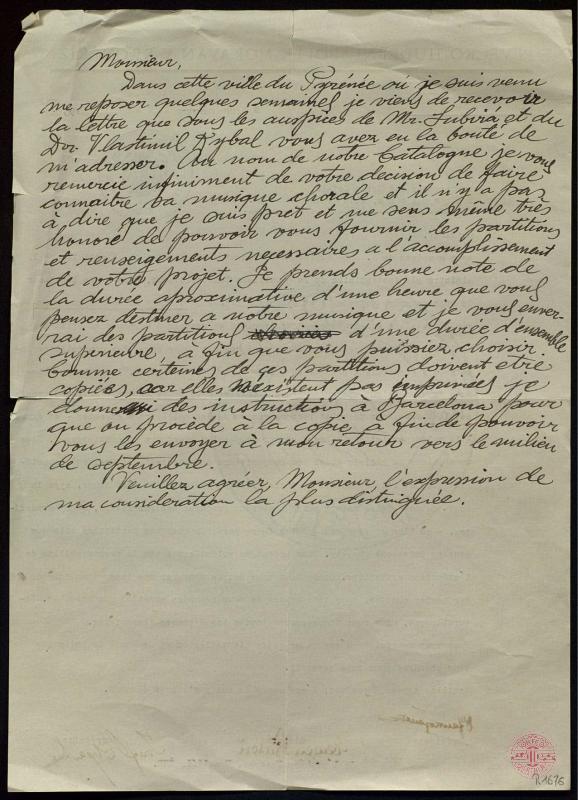 Monsieur,
Dans cette ville du Pyrénée où je suis venu
me reposer quelques semaines je viens de recevoir
la lettre que sous les auspices de Mr. Subirà et du
Dor. Vlastimil Kybal vous avez eu la bonté de
m'adresser. Au nom de notre Catalogne je vous
remercie infiniment de votre decision de faire
connaitre sa musique chorale et il n'y a pas
à dire que je suis prêt et me sens même très
honoré de pouvoir vous fournir les partitions
et renseignements necessaires a l'accomplissement
de votre projet. Je prends bonne note de
la durée aproximative d'une heure que vous
pensez destiner a notre musique et je vous enver-
rai des partitions d'une durée d'ensemble
superieure, a fin que vous puissiez choisir.
Comme certeines de ces partitions doivent etre
copiées, car elles n'existent pas imprimées je
donne des instructions à Barcelona pour
que on procède à la copie a fin de pouvoir
vous les envoyer à mon retour vers le milieu
de septembre.
Veuillez agréer, Monsieur, l'expression de
ma consideration la plus distinguée.
R.1676